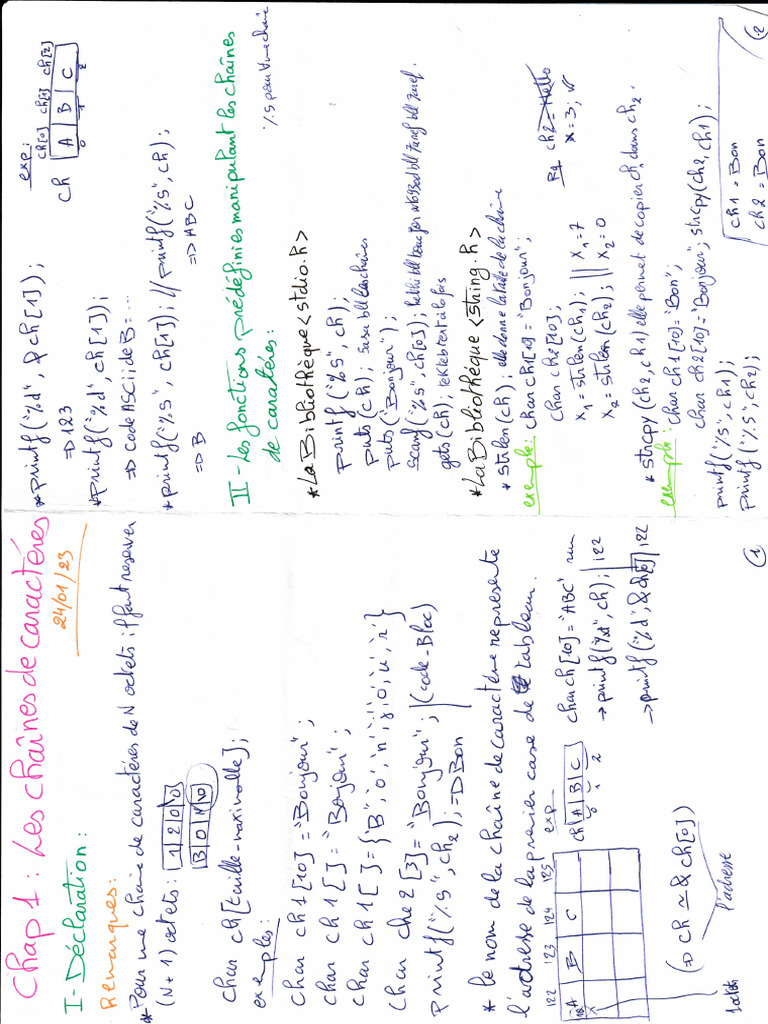 Chap 1 : Les chaînes de caractéres
24/01/23
I- Déclaration :
Remarques :
* Pour une chaîne de caractéres de N octets : il faut reserver
(N+1) octets : 1 2 0 \0
B O N \0
char ch[taille-maximalle];
exemples :
char ch1[10] = "Bonjour" ;
char ch1[ ] = "Bojour" ;
char ch1[ ] = {'B','o','n','j','o','u','r'}
char che2[3] = "Bonjour"; (code-Bloc)
printf("%s", ch2); => Bon
* le nom de la chaîne de caractère represente
l'adresse de la premier case de tableau.
122 123 124 125
A B C
exp
ch A B C
0 1 2
char ch[10] = "ABC" run
-> printf("%d", ch); 122
-> printf("%d", &ch[0]) 122
(=> ch ≃ & ch[0])
l'adresse
1 octet
1
exp :
ch[0] ch[1] ch[2]
ch A B C
0 1 2
* printf("%d", & ch[1]);
=> 123
* printf("%d", ch[1]);
=> code ASCii de B = ...
* printf("%s", ch[1]); // printf("%s", ch);
=> B => ABC
II - Les fonctions prédéfinies manipulant les chaînes
de caratéres :
%s pour une chaine
* La Bibliothèque <stdio.h>
printf("%s", ch);
puts(ch);
puts("Bonjour");
scanf("%s", ch[0]);
gets(ch);
* La Bibliothèque <string.h>
* strlen(ch) ; elle donne la taille de la chaîne
exemple : char ch1[10] = "Bonjour" ;
char ch2[10];
x1 = strlen(ch1); || x1 = 7
x2 = strlen(ch2); || x2 = 0
Rq ch2 = Hello
x = 3; v
* strcpy(ch2, ch1) elle permet de copier ch1 dans ch2.
exemple : char ch1[10] = "Bon";
char ch2[10] = "Bonjour"; strcpy(ch2, ch1);
printf("%s", ch1);
printf("%s", ch2);
ch1 = Bon
ch2 = Bon
2